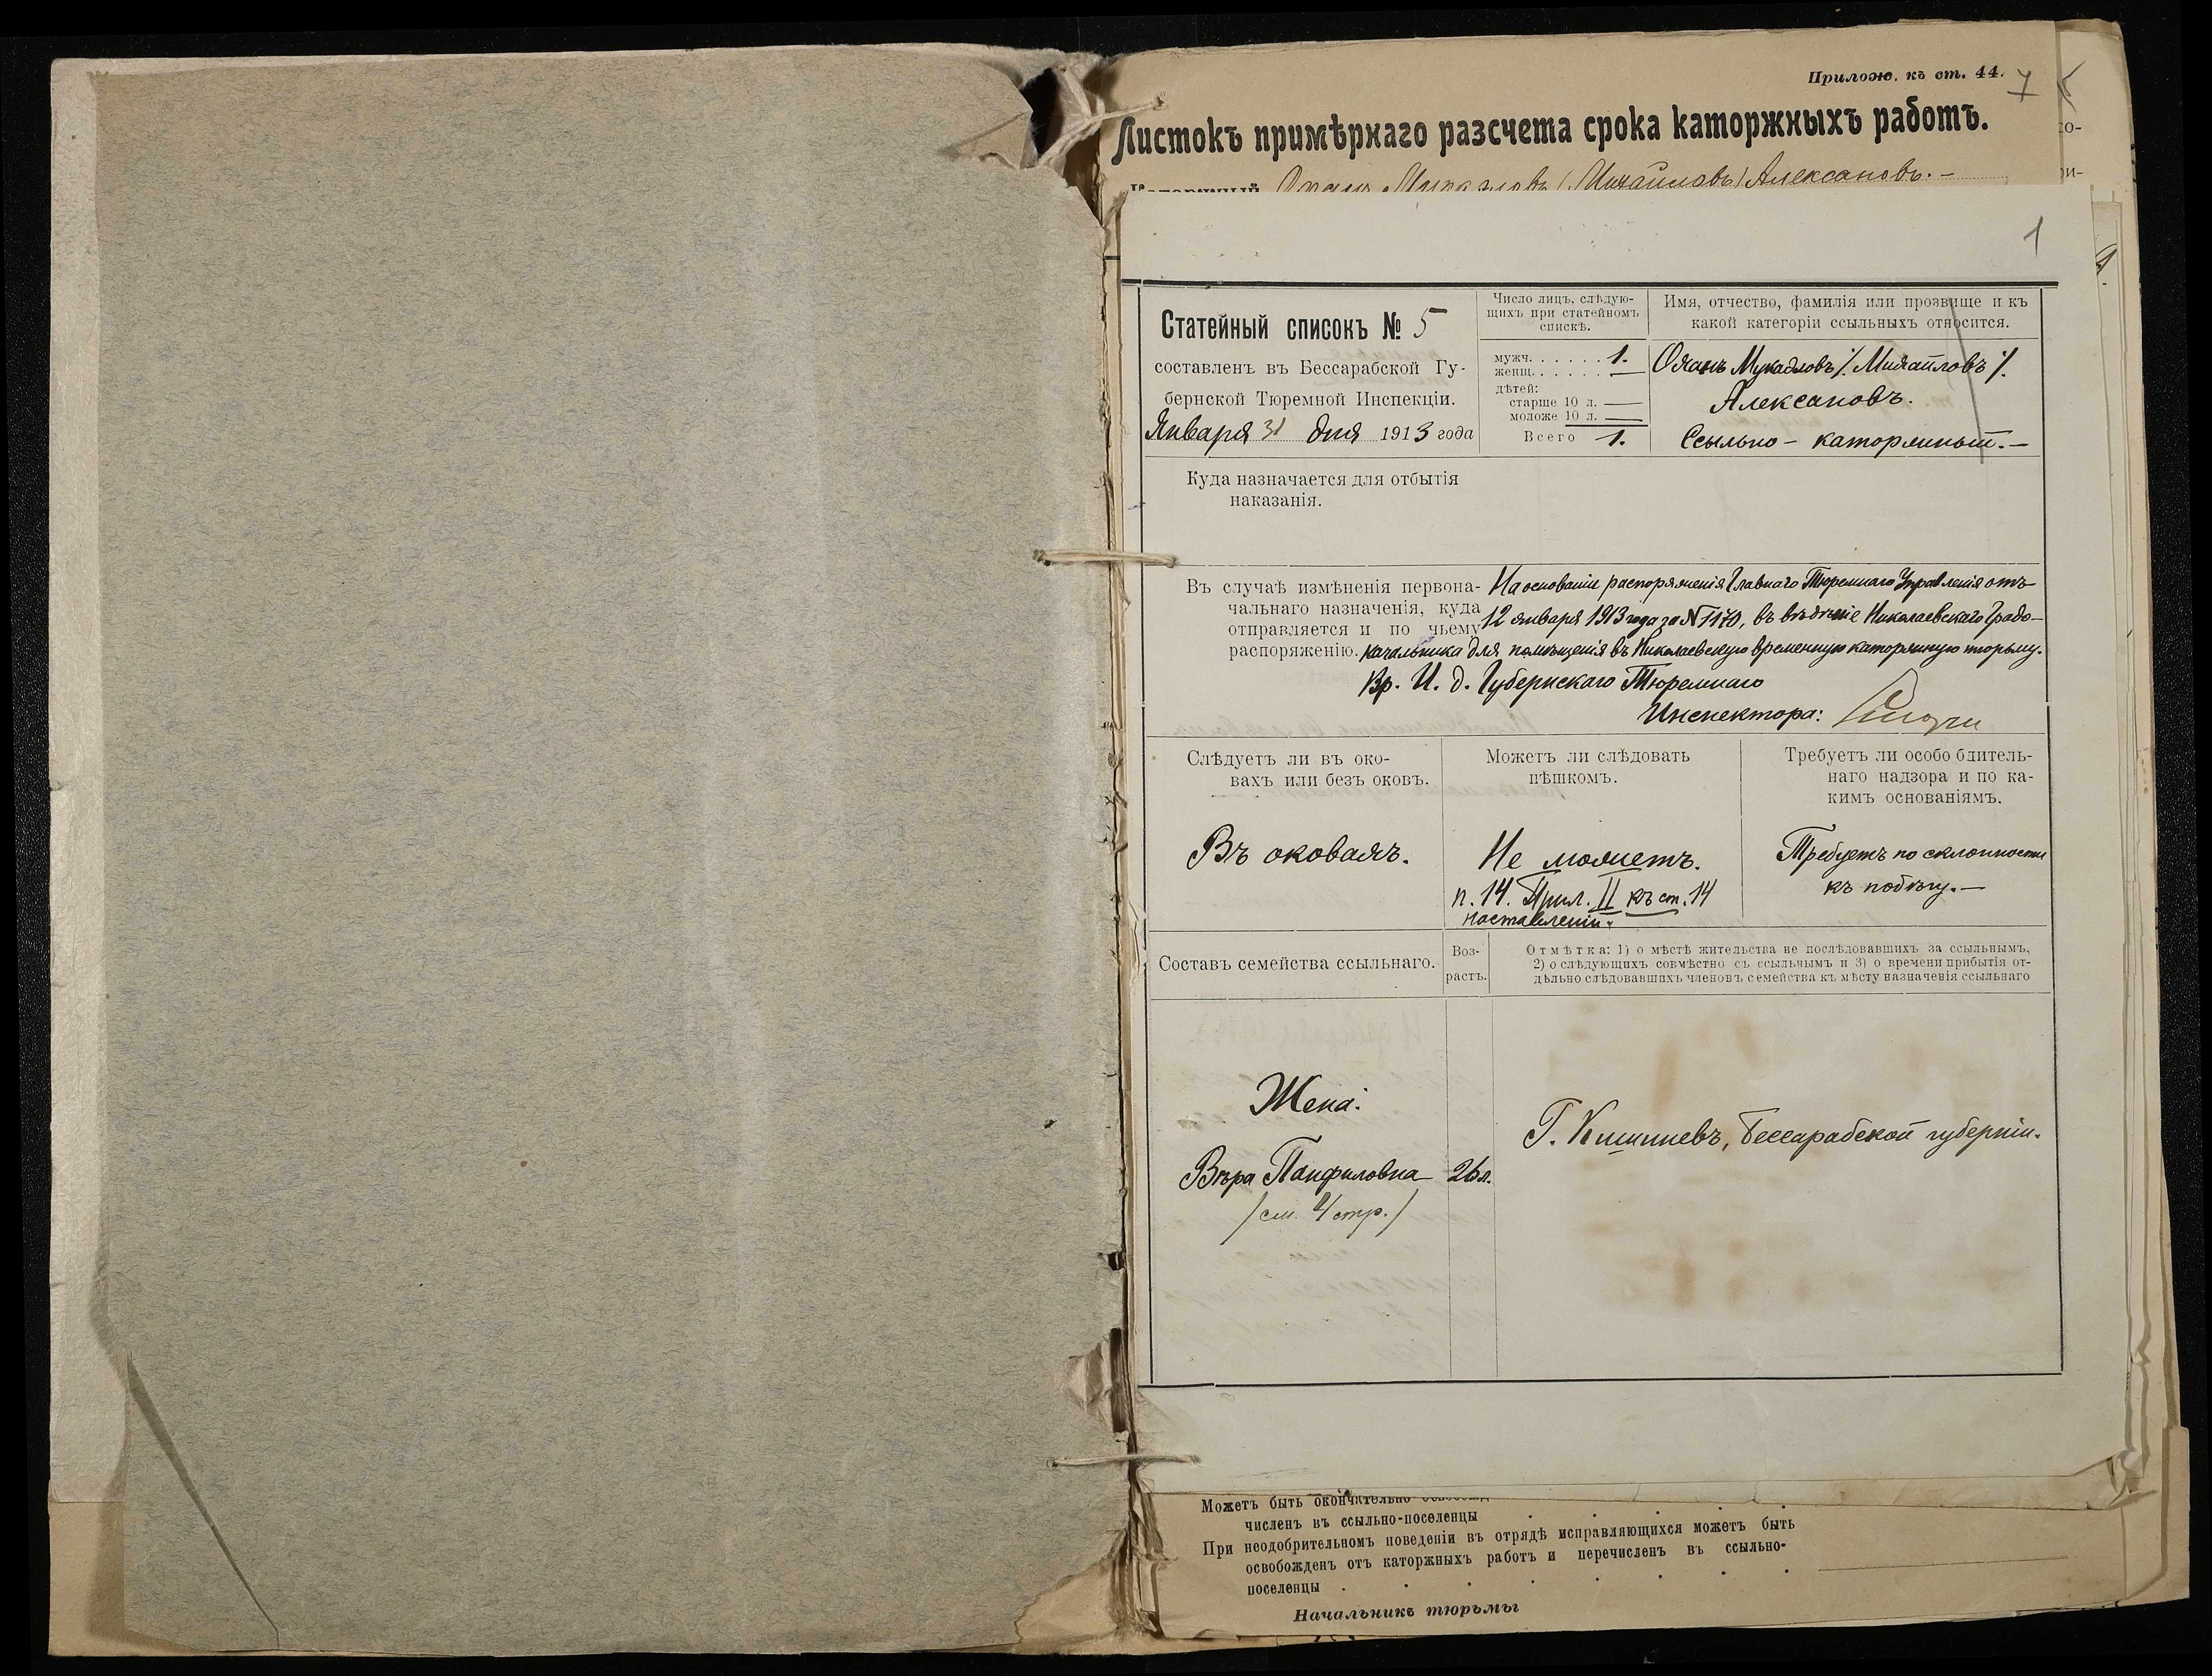 Прилож. къ ст. 44.
7
Листокъ примѣрнаго разсчета срока каторжныхъ работъ.
Каторжный Оханъ Мукадловъ (Михайловъ) Алексановъ.-
со-
ри-
1
Статейный списокъ № 5
составленъ въ Бессарабской Гу-
бернской Тюремной Инспекціи.
Января 31 дня 1913 года
Число лицъ, слѣдую-
щихъ при статейномъ
спискѣ.
мужч. . . . . . 1.
женщ. . . . . . —
дѣтей:
старше 10 л. —
моложе 10 л. —
Всего 1.
Имя, отчество, фамилія или прозвище и къ
какой категоріи ссыльныхъ относится.
Оханъ Мукадловъ /. Михайловъ /.
Алексановъ.
Ссыльно - каторжный. -
Куда назначается для отбытія
наказанія.
Въ случаѣ измѣненія первона-
чальнаго назначенія, куда
отправляется и по чьему
распоряженію.
На основаніи распоряженія Главнаго Тюремнаго Управленія отъ
12 января 1913 года за № 1170, въ вѣдѣніе Николаевскаго Градо-
начальника для помѣщенія въ Николаевскую временную каторжную тюрьму.
Вр. И. д. Губернскаго Тюремнаго
Инспектора:
Слѣдуетъ ли въ око-
вахъ или безъ оковъ.
Въ оковахъ.
Можетъ ли слѣдовать
пѣшкомъ.
Не можетъ.
п. 14. Прил. II къ ст. 14
наставленій.
Требуетъ ли особо бдитель-
наго надзора и по ка-
кимъ основаніямъ.
Требуетъ по склонности
къ побѣгу. -
Составъ семейства ссыльнаго.
Воз-
растъ.
Отмѣтка: 1) о мѣстѣ жительства не послѣдовавшихъ за ссыльнымъ,
2) о слѣдующихъ совмѣстно съ ссыльнымъ и 3) о времени прибытія от-
дѣльно слѣдовавшихъ членовъ семейства къ мѣсту назначенія ссыльнаго
Жена:
Вѣра Панфиловна 26 л.
/см. 4 стр./
Г. Кишиневъ, Бессарабской губерніи.
Можетъ быть окончательно освобожд
численъ въ ссыльно-поселенцы
При неодобрительномъ поведеніи въ отрядѣ исправляющихся можетъ быть
освобожденъ отъ каторжныхъ работъ и перечисленъ въ ссыльно-
поселенцы
Начальникъ тюрьмы